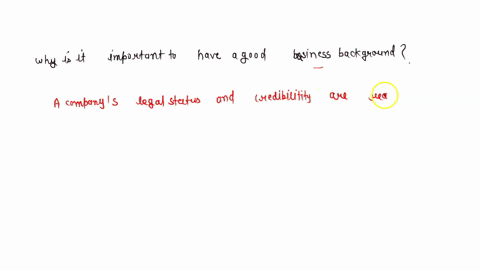 why is it important to have a good business background?
A company's legal status and credibilitity are rea